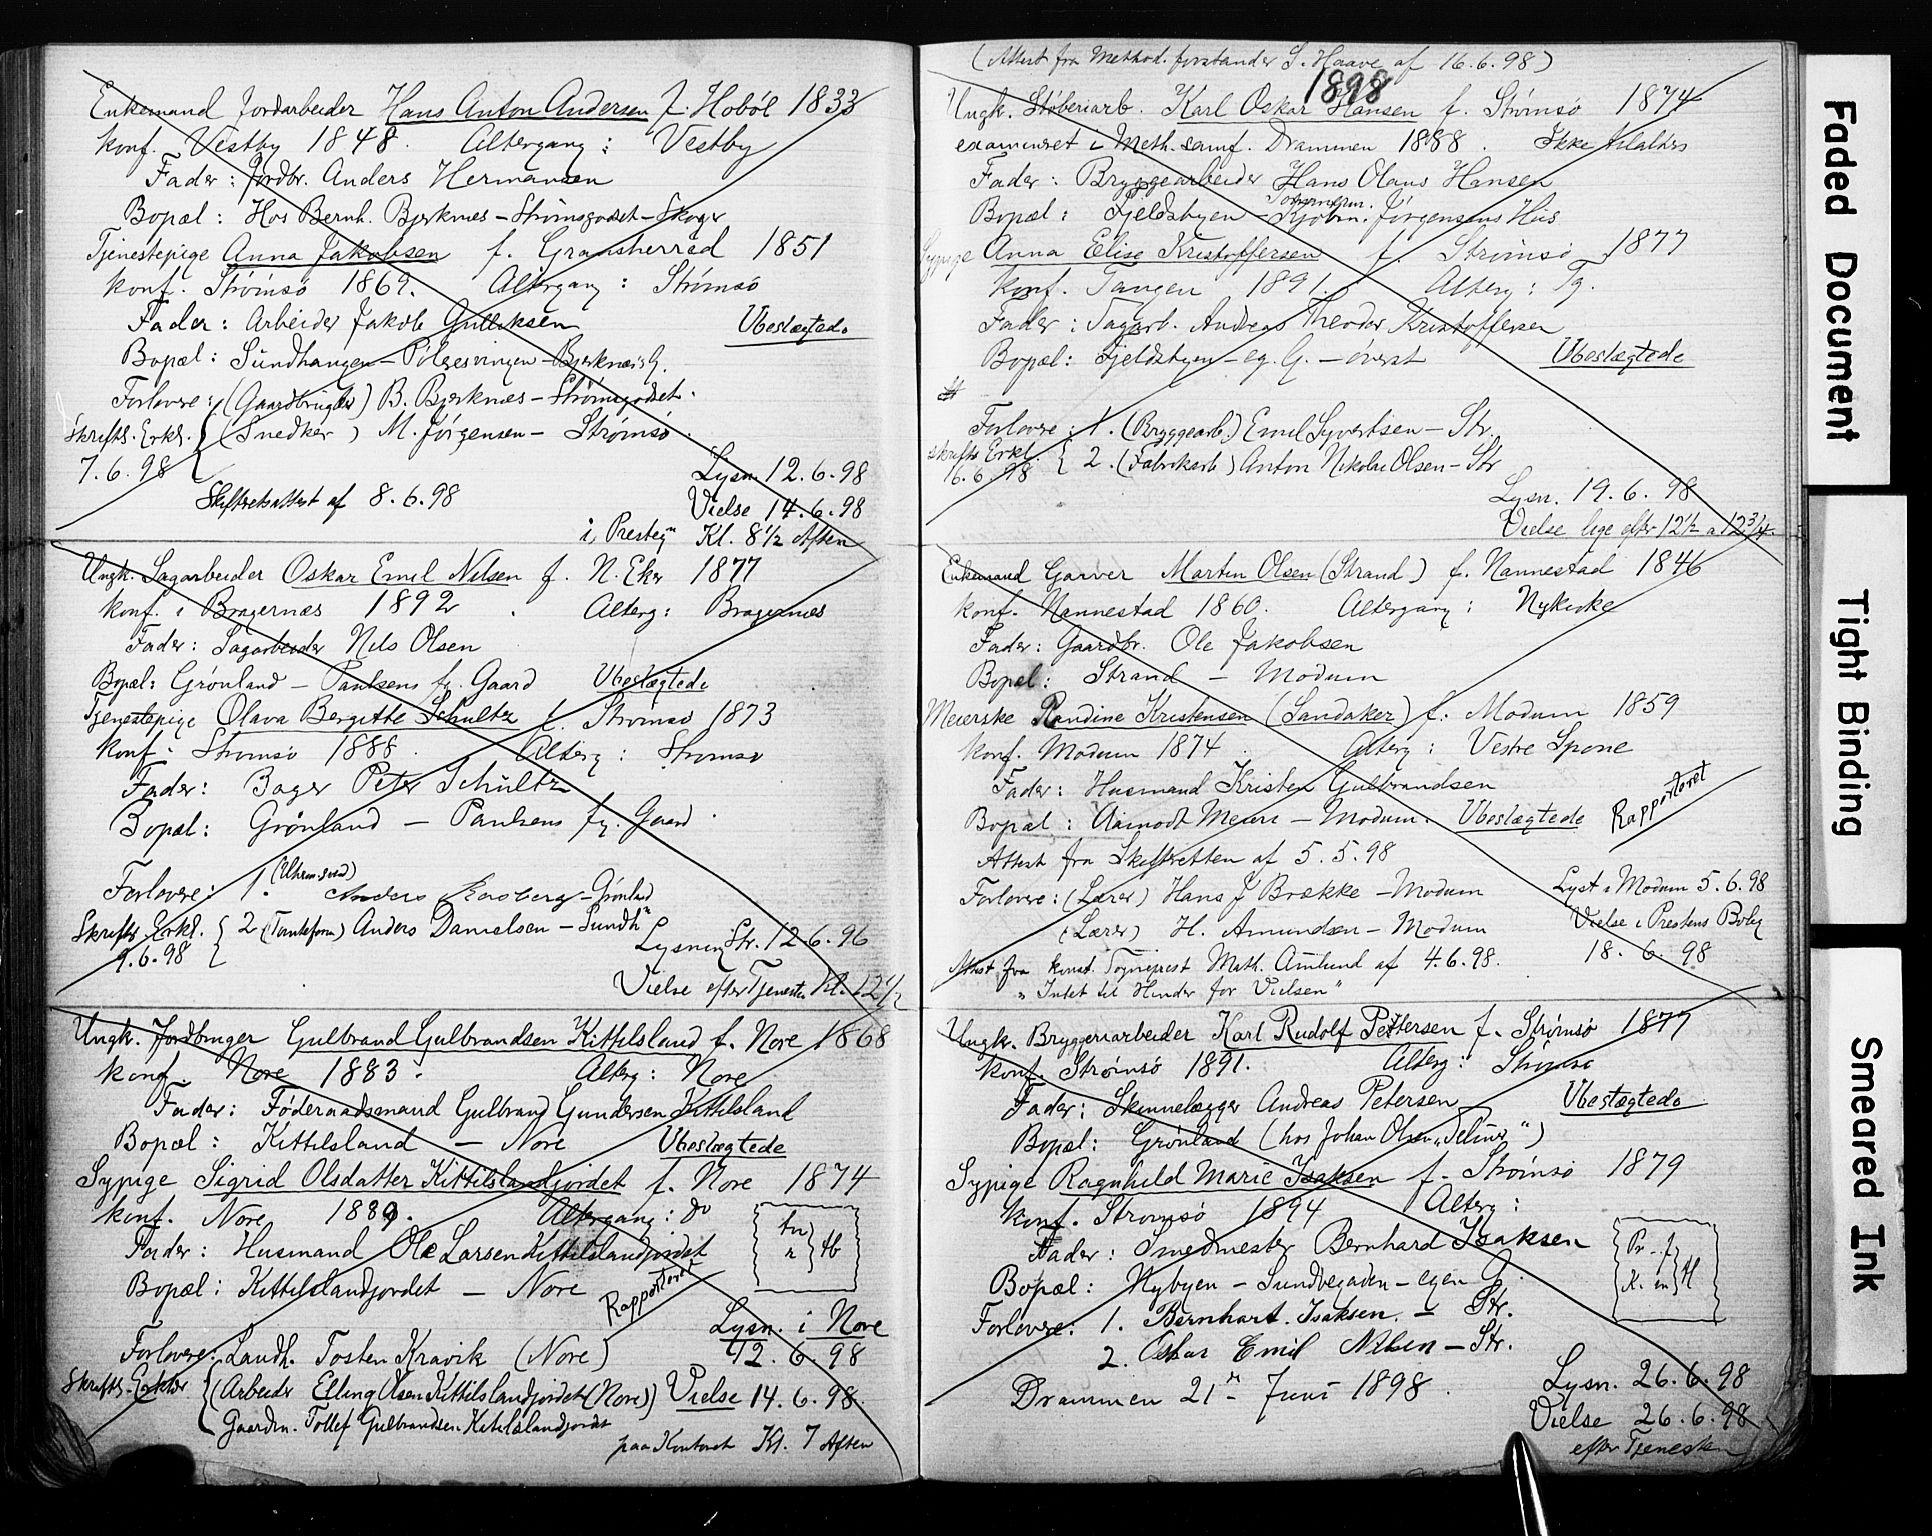 Enkemand Jordarbeider Hans Anton Andersen f. Hobøl 1833
konf. Vestby 1848. Altergang: Vestby
Fader: Jordbr. Anders Hermansen
Bopæl: Hos Bernh. Bjerknæs – Strømsgodset – Skoger
Tjenestepige Anna Jakobsen f. Gransherred 1851
konf. Strømsø 1869. Altergang: Strømsø
Fader: Arbeider Jakob Gulliksen Ubeslægtede
Bopæl: Sundhaugen – Pølsesvingen – Bjerknæs G.
Forlovere: (Gaardbruger) B. Bjerknæs – Strømsgodset.
Skriftl. Erkl. (Snedker) M. Jørgensen – Strømsø.
7.6.98 Lysn. 12.6.98
Skifteretsattest af 8.6.98 Vielse 14.6.98
i Presteg. Kl. 8 1/2 Aften
Ungk. Sagarbeider Oskar Emil Nilsen f. N. Eker 1877
konf. i Bragernæs 1892. Alterg: Bragernæs
Fader: Sagarbeider Nils Olsen
Bopæl: Grønland – Paulsens fg. Gaard Ubeslægtede
Tjenestepige Olava Bergitte Schultz f. Strømsø 1873
konf. Strømsø 1888. Alterg: Strømsø
Fader: Bager Peter Schultz
Bopæl: Grønland – Paulsens fg. Gaard.
Forlovere: 1. Anders – Grønland
Skriftl. Erkl. 2. Anders Danielsen – Sundh
9.6.98 Lysning Str. 12.6.96
Vielse efter Tjenesten Kl. 12 1/2
Ungk. Jordbruger Gulbrand Gulbrandsen Kittilsland f. Nore 1868
konf. Nore 1883. Alterg: Nore
Fader: Føderaadsmand Gulbrand Gundersen Kittilsland
Bopæl: Kittilsland – Nore Ubeslægtede
Sypige Sigrid Olsdatter Kittilslandjordet f. Nore 1874
konf. Nore 1889. Altergang: do
Fader: Husmand Ole Larsen Kittilslandjordet
Bopæl: Kittilslandjordet – Nore Rapporteret
Lysn. i Nore
Forlovere: Landh. Tosten Kravik (Nore) 12.6.98
Skriftl. (Arbeider Elling Olsen Kittilslandjordet (Nore)) Vielse 14.6.98.
Gaardm. Tollef Gulbrandsen Kittilslandjordet
paa Kontoret Kl. 7 Aften
(Attest fra Method. forstander S. Haave af 16.6.98)
1898
Ungk. Støberiarb. Karl Oskar Hansen f. Strømsø 1874
examineret i Meth. samf. Drammen 1888. Ikke
Fader: Bryggearbeider Hans Olaus Hansen
Bopæl: Fjeldsbyen – Kjøbm. Jørgensens Hus
Sypige Anna Elise Kristoffersen f. Strømsø 1877
konf. Tangen 1891. Alterg: Tg.
Fader: Sagarb. Andreas Theodor Kristoffersen
Bopæl: Fjeldsbyen – eg. G. – øverst Ubeslægtede
Forlovere: 1. (Bryggearb.) Emil Syvertsen – Str.
skriftl. Erkl. 2. (Fabrikarb.) Anton Nikolai Olsen – Str.
16.6.98 Lysn. 19.6.98
Vielse lige efter 12 1/2 a 12 3/4.
Enkemand Garver Martin Olsen (Strand) f. Nannestad 1846
konf. Nannestad 1860. Altergang: Nykirke
Fader: Gaardbr. Ole Jakobsen
Bopæl: Strand – Modum
Meierske Randine Kristensen (Sandaker) f. Modum 1859
konf. Modum 1874. Alterg: Vestre Spone
Fader: Husmand Kristen Gulbrandsen
Bopæl: Aamodt Meieri – Modum. Ubeslægtede Rapporteret
Attest fra Skifteretten af 5.5.98
Forlovere: (Lærer) Hans J Brække – Modum Lyst i Modum 5.6.98
(Lærer) H. Amundsen – Modum Vielse i Prestens Bolig
18.6.98
Attest fra konst. Sogneprest Math. Amlund af 4.6.98.
"Intet til Hinder for Vielsen"
Ungk. Bryggeriarbeider Karl Rudolf Pettersen f. Strømsø 1877
konf. Strømsø 1891. Alterg: Strømsø
Fader: Skinnelægger Andreas Petersen Ubeslægtede
Bopæl: Grønland (hos Johan Olsen)
Sypige Ragnhild Marie Isaksen f. Strømsø 1879
konf. Strømsø 1894 Alterg:
Fader: Smedmester Bernhard Isaksen
Bopæl: Nybyen – Sundvegaden – egen G.
Forlovere: 1. Bernhart. Isaksen. – Str.
2. Oskar Emil Nilsen – Str.
Drammen 21. Juni 1898. Lysn. 26.6.98
Vielse 26.6.98
efter Tjenesten
Faded Document
Tight Binding
Smeared Ink